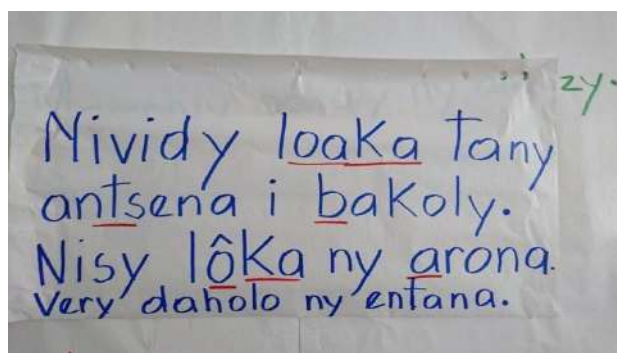 zy.
Nividy loaka tany
antsena i bakoly.
Nisy lôka ny arona.
Very daholo ny entana.